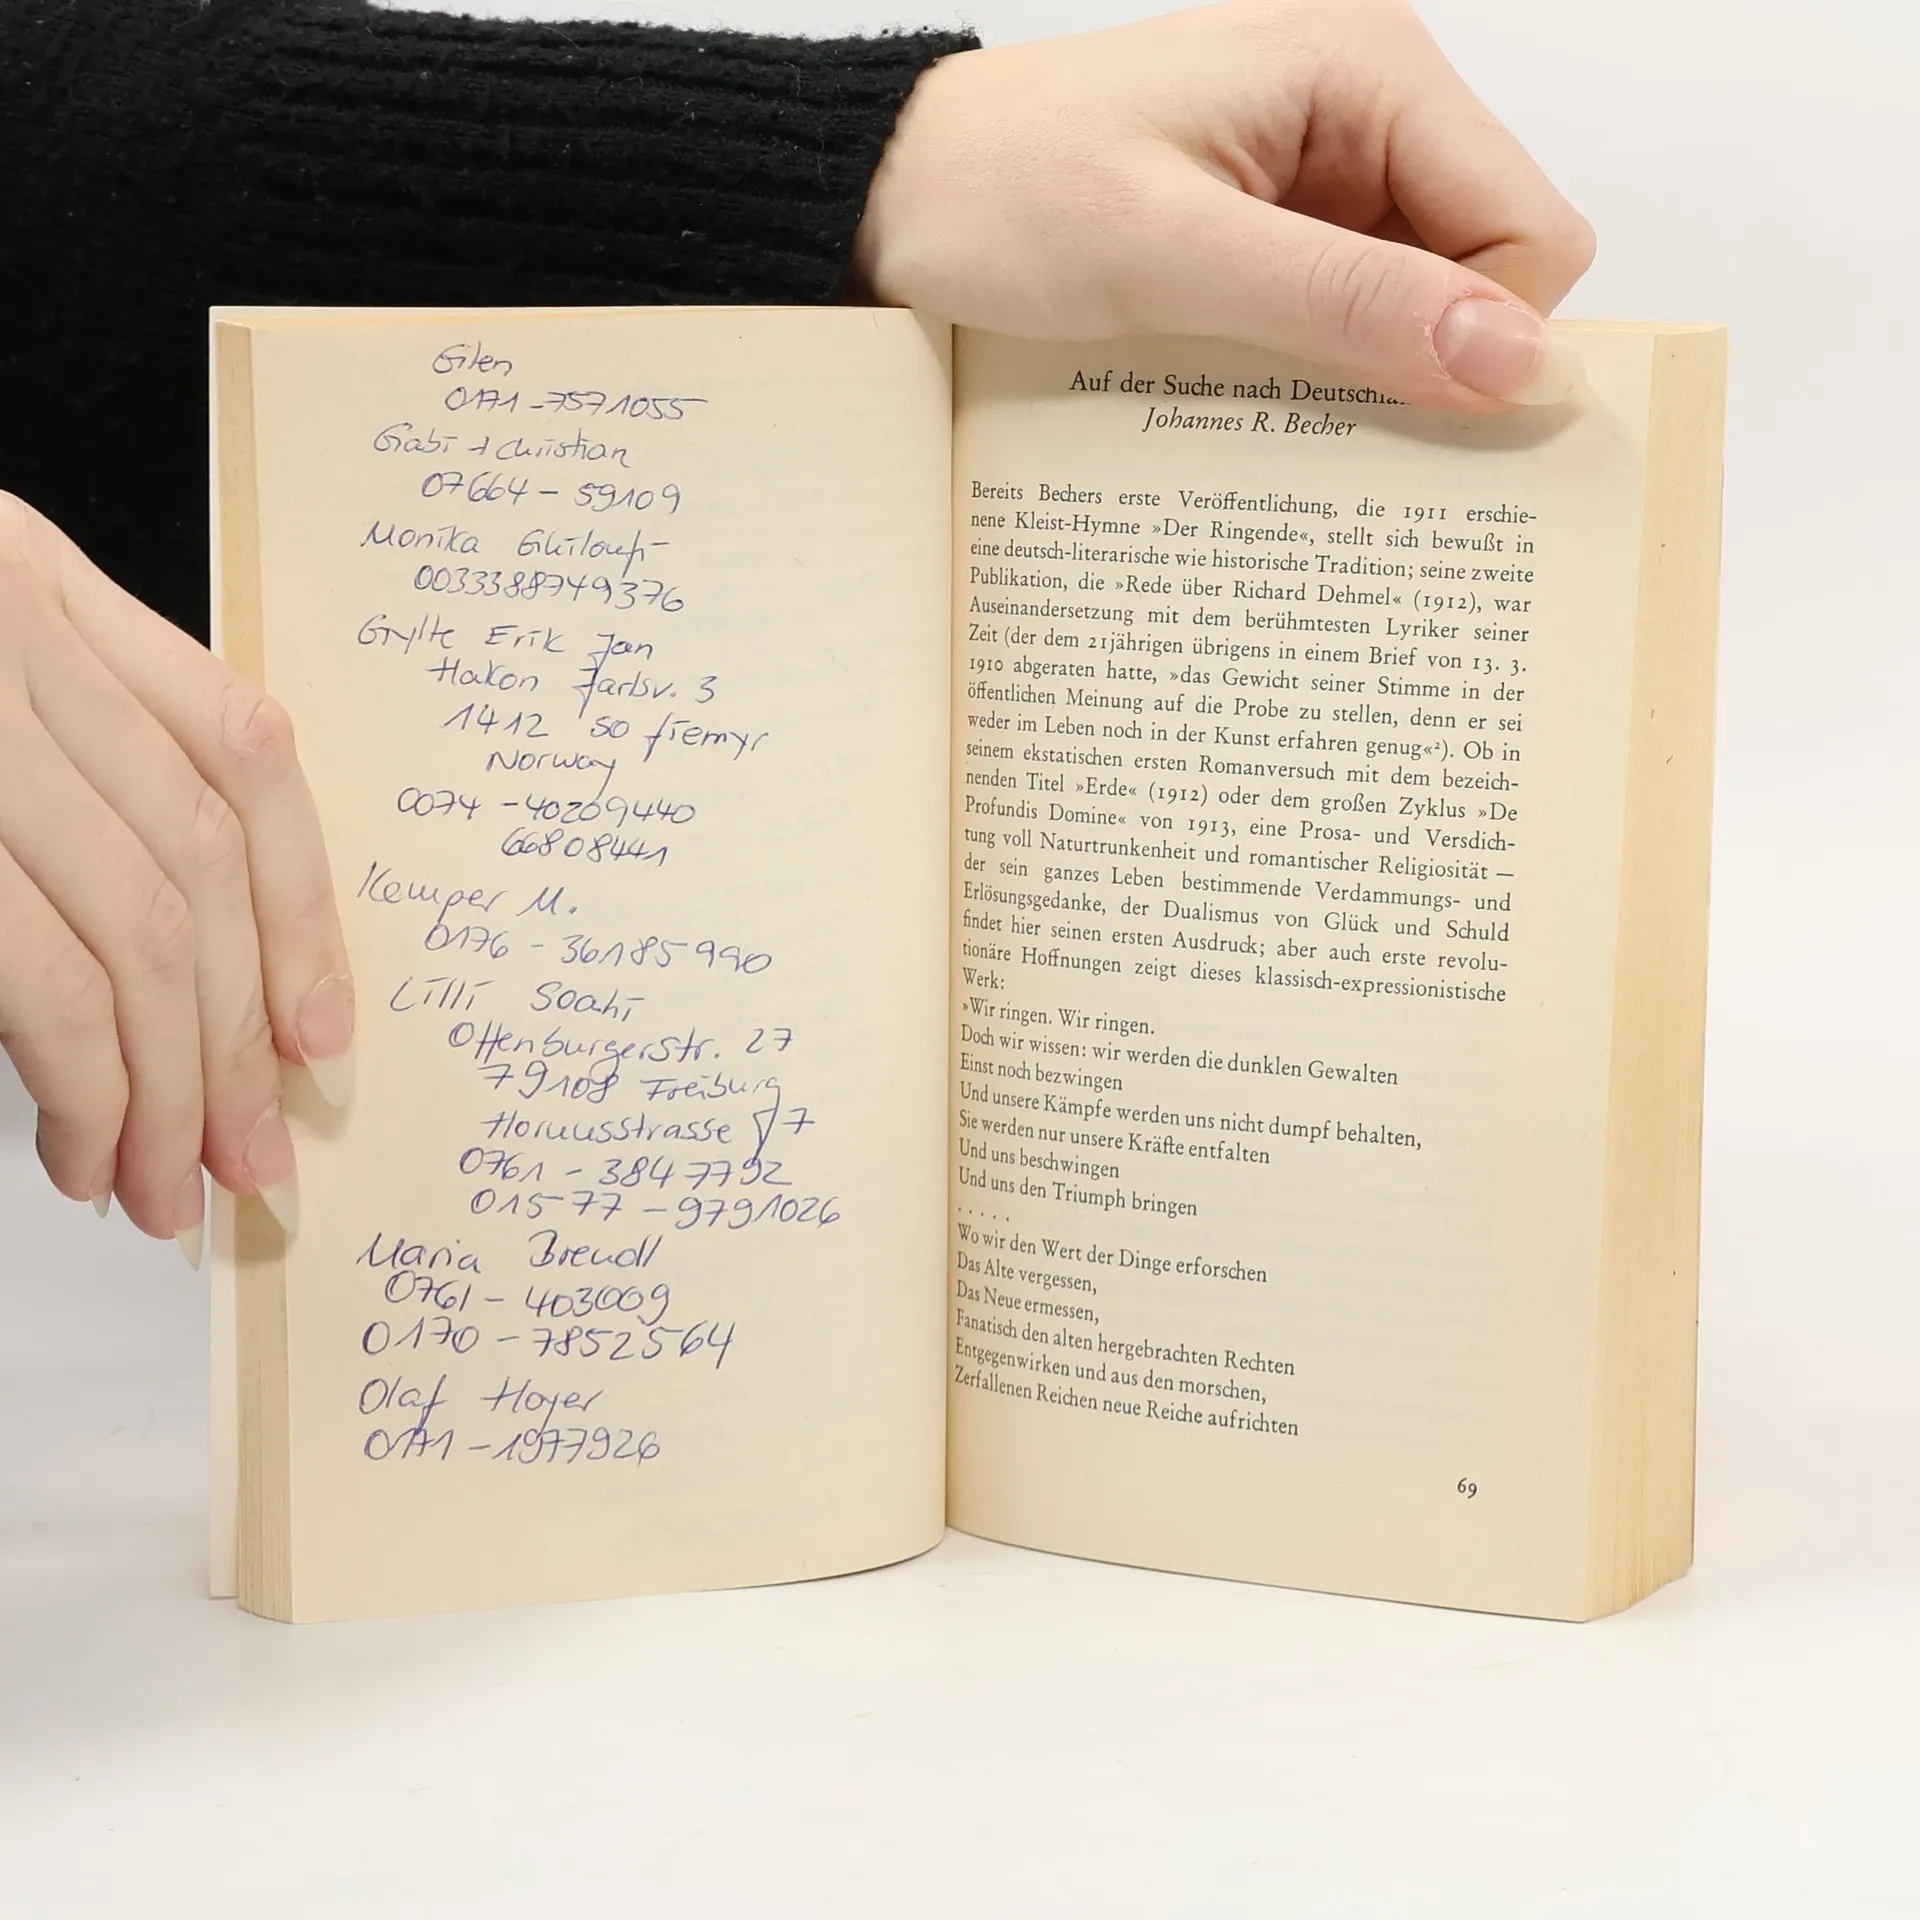 0171-7571055
Gabi + Christian
07664 - 59109
Monika
0033388749376
Erik Jan
Hakon Jarlsv. 3
1412 Sofiemyr
Norway
0074 - 40209440
66808441
Kemper M.
0176 - 36185990
Lilli Soahi
Offenburgerstr. 27
79108 Freiburg
Hornusstrasse 17
0761 - 3847792
01577 - 9791026
Maria Brendl
0761 - 403009
0170 - 7852564
Olaf Hoyer
0171 - 1977926
Auf der Suche nach
Johannes R. Becher
Bereits Bechers erste Veröffentlichung, die 1911 erschie-
nene Kleist-Hymne »Der Ringende«, stellt sich bewußt in
eine deutsch-literarische wie historische Tradition; seine zweite
Publikation, die »Rede über Richard Dehmel« (1912), war
Auseinandersetzung mit dem berühmtesten Lyriker seiner
Zeit (der dem 21jährigen übrigens in einem Brief von 13. 3.
1910 abgeraten hatte, »das Gewicht seiner Stimme in der
öffentlichen Meinung auf die Probe zu stellen, denn er sei
weder im Leben noch in der Kunst erfahren genug«²). Ob in
seinem ekstatischen ersten Romanversuch mit dem bezeich-
nenden Titel »Erde« (1912) oder dem großen Zyklus »De
Profundis Domine« von 1913, eine Prosa- und Versdich-
tung voll Naturtrunkenheit und romantischer Religiosität —
der sein ganzes Leben bestimmende Verdammungs- und
Erlösungsgedanke, der Dualismus von Glück und Schuld
findet hier seinen ersten Ausdruck; aber auch erste revolu-
tionäre Hoffnungen zeigt dieses klassisch-expressionistische
Werk:
»Wir ringen. Wir ringen.
Doch wir wissen: wir werden die dunklen Gewalten
Einst noch bezwingen
Und unsere Kämpfe werden uns nicht dumpf behalten,
Sie werden nur unsere Kräfte entfalten
Und uns beschwingen
Und uns den Triumph bringen
. . . . .
Wo wir den Wert der Dinge erforschen
Das Alte vergessen,
Das Neue ermessen,
Fanatisch den alten hergebrachten Rechten
Entgegenwirken und aus den morschen,
Zerfallenen Reichen neue Reiche aufrichten
69